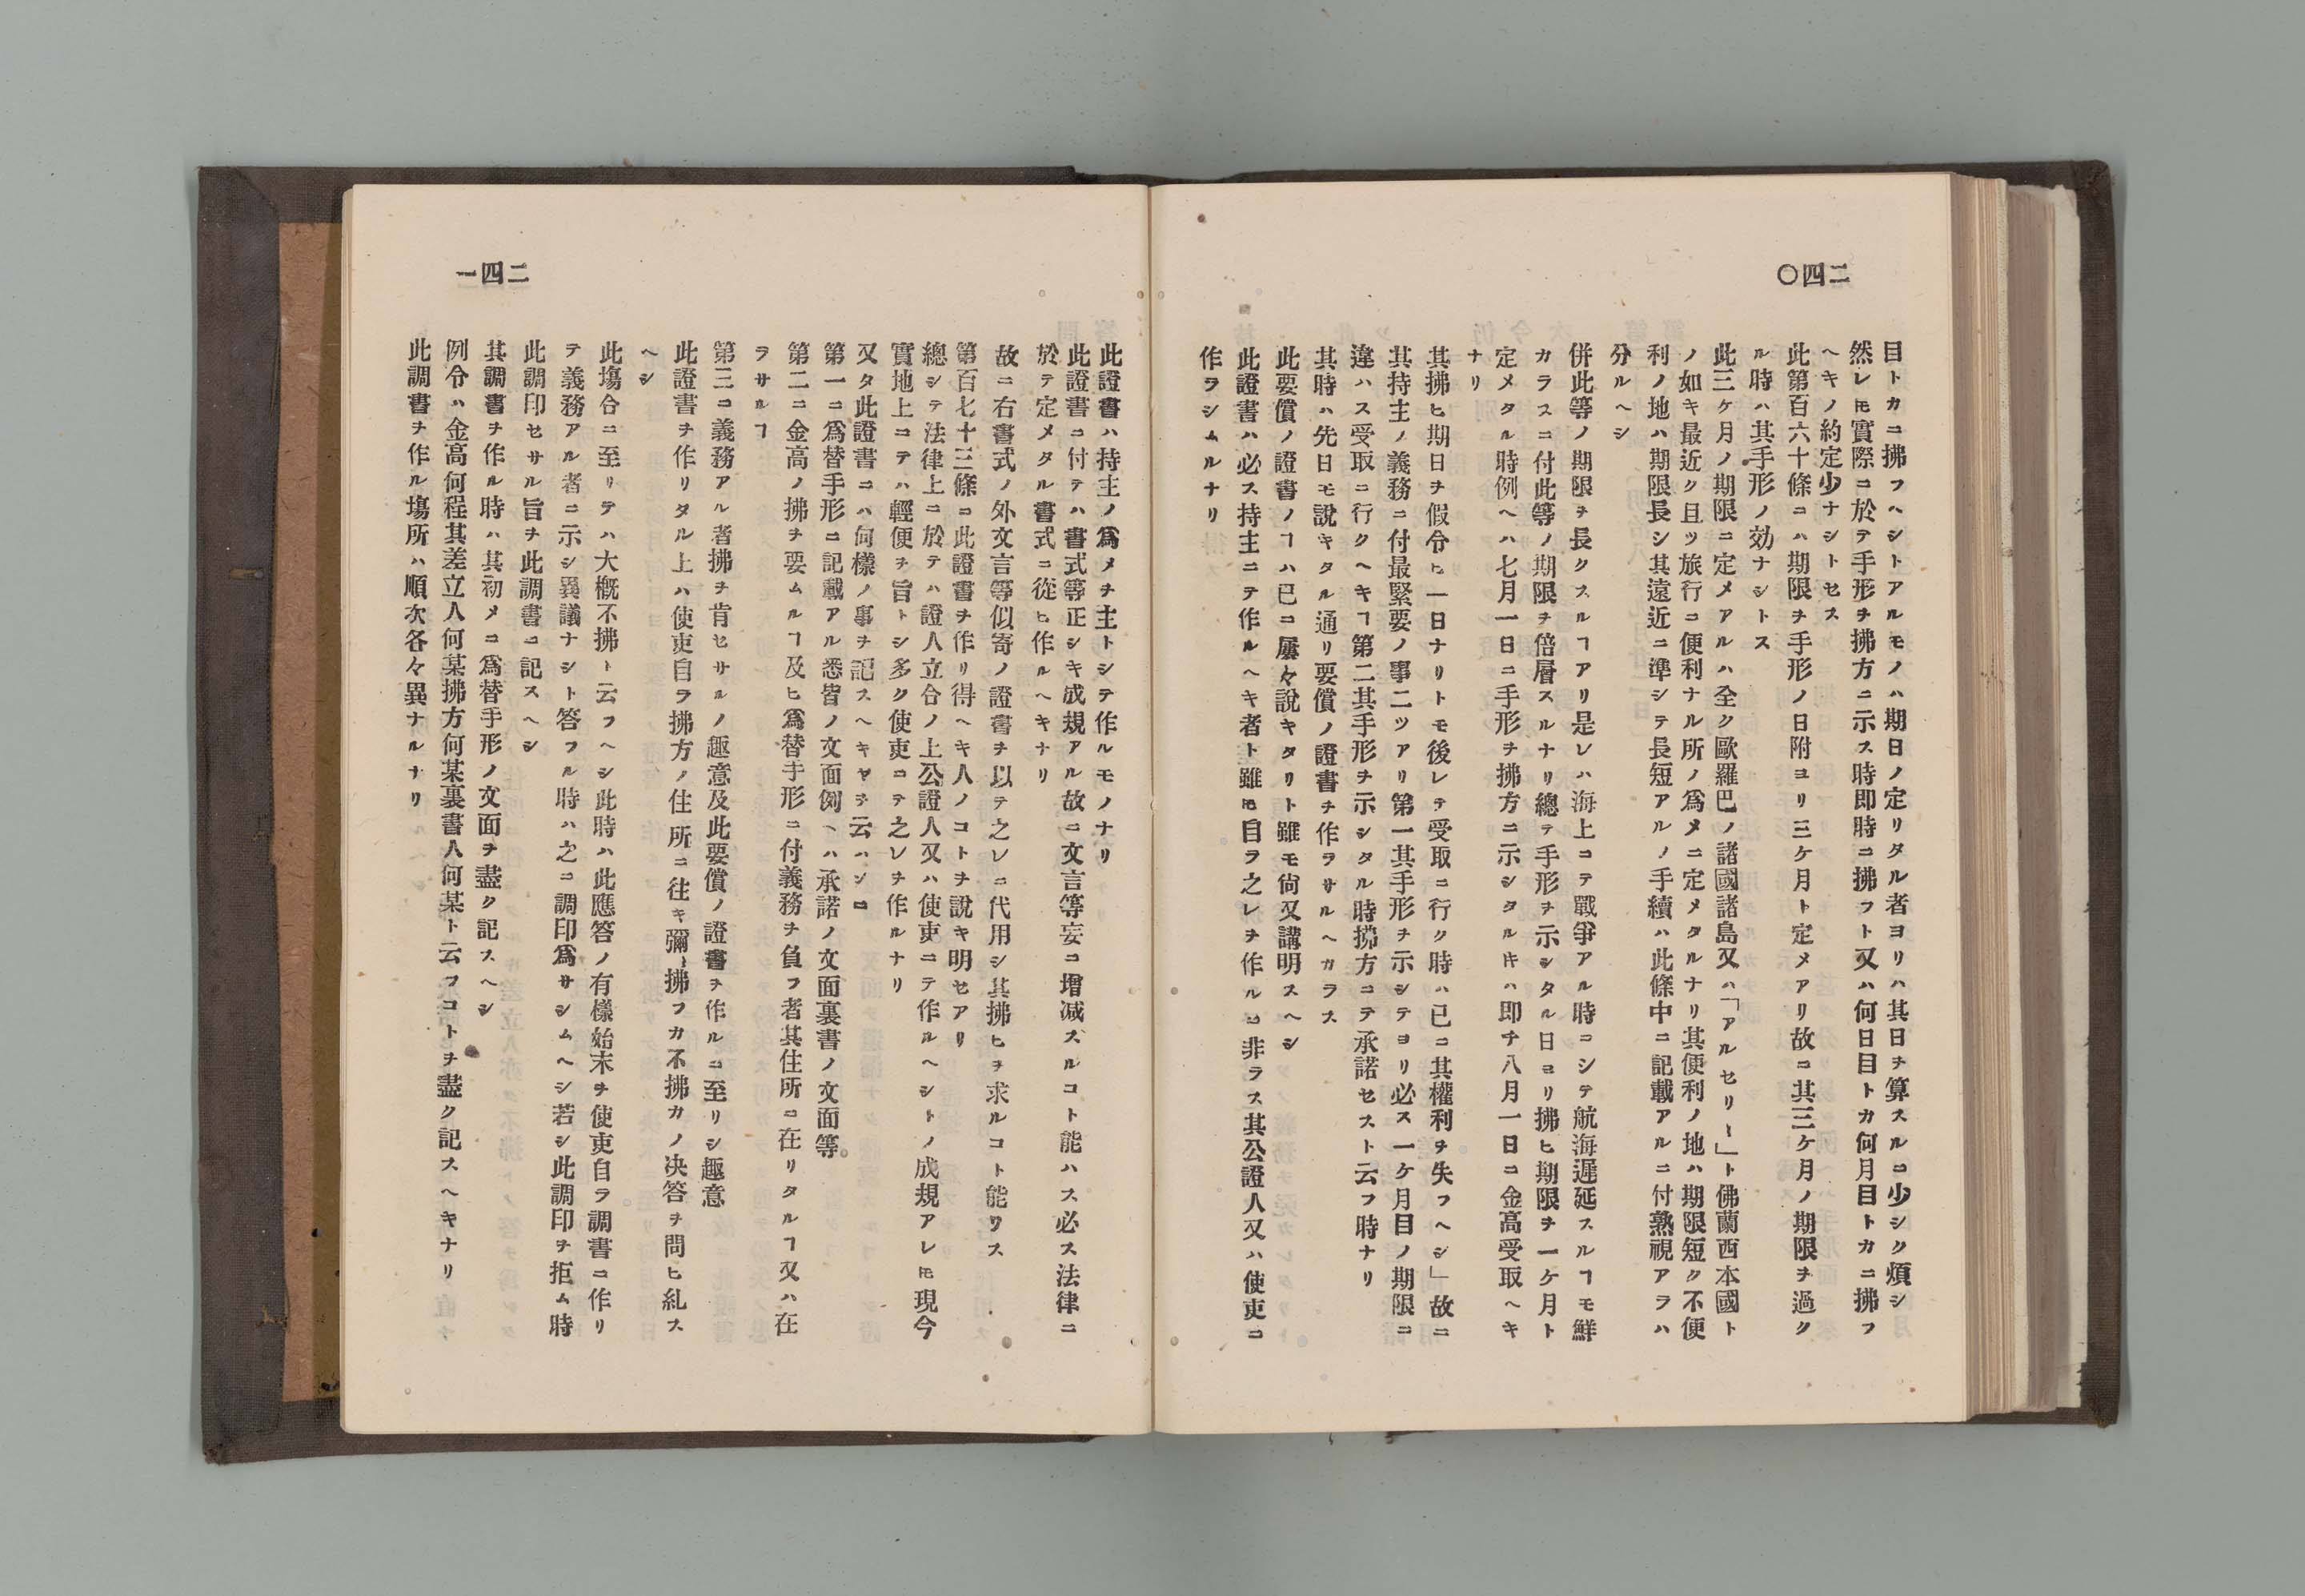 二四〇
目トカニ拂フヘシトアルモノハ期日ノ定リタル者ヨリハ其日ヲ算スルコ少シク煩シ
然レ𪜈實際ニ於テ手形ヲ拂方ニ示ス時即時ニ拂フト又ハ何日目トカ何月目トカニ拂フ
ヘキノ約定少ナシトセス
此第百六十條ニハ期限ヲ手形ノ日附ヨリ三ケ月ト定メアリ故ニ其三ケ月ノ期限ヲ過ク
ル時ハ其手形ノ効ナシトス
此三ケ月ノ期限ニ定メアルハ全ク歐羅巴ノ諸國諸島又ハ「アルセリー」ト佛蘭西本國ト
ノ如キ最近ク且ツ旅行ニ便利ナル所ノ爲メニ定メタルナリ其便利ノ地ハ期限短ク不便
利ノ地ハ期限長シ其遠近ニ準シテ長短アルノ手續ハ此條中ニ記載アルニ付熟視アラハ
分ルヘシ
併此等ノ期限ヲ長クスルヿアリ是レハ海上ニテ戰爭アル時ニシテ航海遲延スルヿモ鮮
カラスニ付此等ノ期限ヲ倍層スルナリ總テ手形ヲ示シタル日ヨリ拂ヒ期限ヲ一ケ月ト
定メタル時例ヘハ七月一日ニ手形ヲ拂方ニ示シタルキハ即チ八月一日ニ金高受取ヘキ
ナリ
其拂ヒ期日ヲ假令ヒ一日ナリトモ後レテ受取ニ行ク時ハ已ニ其權利ヲ失フヘシ」故ニ
其持主ノ義務ニ付最緊要ノ事二ツアリ第一其手形ヲ示シテヨリ必ス一ケ月目ノ期限ニ
違ハス受取ニ行クヘキヿ第二其手形ヲ示シタル時拂方ニテ承諾セスト云フ時ナリ
其時ハ先日モ説キタル通リ要償ノ證書ヲ作ラサルヘカラス
此要償ノ證書ノヿハ已ニ屢々說キタリト雖モ尙又講明スヘシ
此證書ハ必ス持主ニテ作ルヘキ者ト雖𪜈自ラ之レヲ作ルニ非ラス其公證人又ハ使吏ニ
作ラシムルナリ
二四一
此證書ハ持主ノ爲メヲ主トシテ作ルモノナリ
此證書ニ付テハ書式等正シキ成規アル故ニ文言等妄ニ增減スルコト能ハス必ス法律ニ
於テ定メタル書式ニ從ヒ作ルヘキナリ
故ニ右書式ノ外文言等似寄ノ證書ヲ以テ之レニ代用シ其拂ヒヲ求ルコト能ワス
第百七十三條ニ此證書ヲ作リ得ヘキ人ノコトヲ說キ明セアリ
總シテ法律上ニ於テハ證人立合ノ上公證人又ハ使吏ニテ作ルヘシトノ成規アレ𪜈現今
實地上ニテハ輕便ヲ旨トシ多ク使吏ニテ之レヲ作ルナリ
又タ此證書ニハ何樣ノ事ヲ記スヘキヤヲ云ハンニ
第一ニ爲替手形ニ記載アル悉皆ノ文面例ヘハ承諾ノ文面裏書ノ文面等
第二ニ金高ノ拂ヲ要ムルヿ及ヒ爲替手形ニ付義務ヲ負フ者其住所ニ在リタルヿ又ハ在
ラサルヿ
第三ニ義務アル者拂ヲ肯セサルノ趣意及此要償ノ證書ヲ作ルニ至リシ趣意
此證書ヲ作リタル上ハ使吏自ラ拂方ノ住所ニ往キ彌〻拂フカ不拂カノ決答ヲ問ヒ糺ス
ヘシ
此塲合ニ至リテハ大概不拂ト云フヘシ此時ハ此應答ノ有樣始末ヲ使吏自ラ調書ニ作リ
テ義務アル者ニ示シ異議ナシト答フル時ハ之ニ調印爲サシムヘシ若シ此調印ヲ拒ム時
此調印セサル旨ヲ此調書ニ記スヘシ
其調書ヲ作ル時ハ其初メニ爲替手形ノ文面ヲ盡ク記スヘシ
例令ハ金高何程其差立人何某拂方何某裏書人何某ト云フコトヲ盡ク記スヘキナリ
此調書ヲ作ル塲所ハ順次各々異ナルナリ